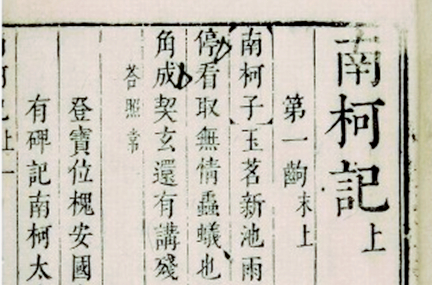 南柯記上
第一齣末上
【南柯子】玉茗新池雨
停看取無情蟲蟻也
角成契玄還有講殘
荅照常
登寶位槐安國
有碑記南柯太
南柯記上一